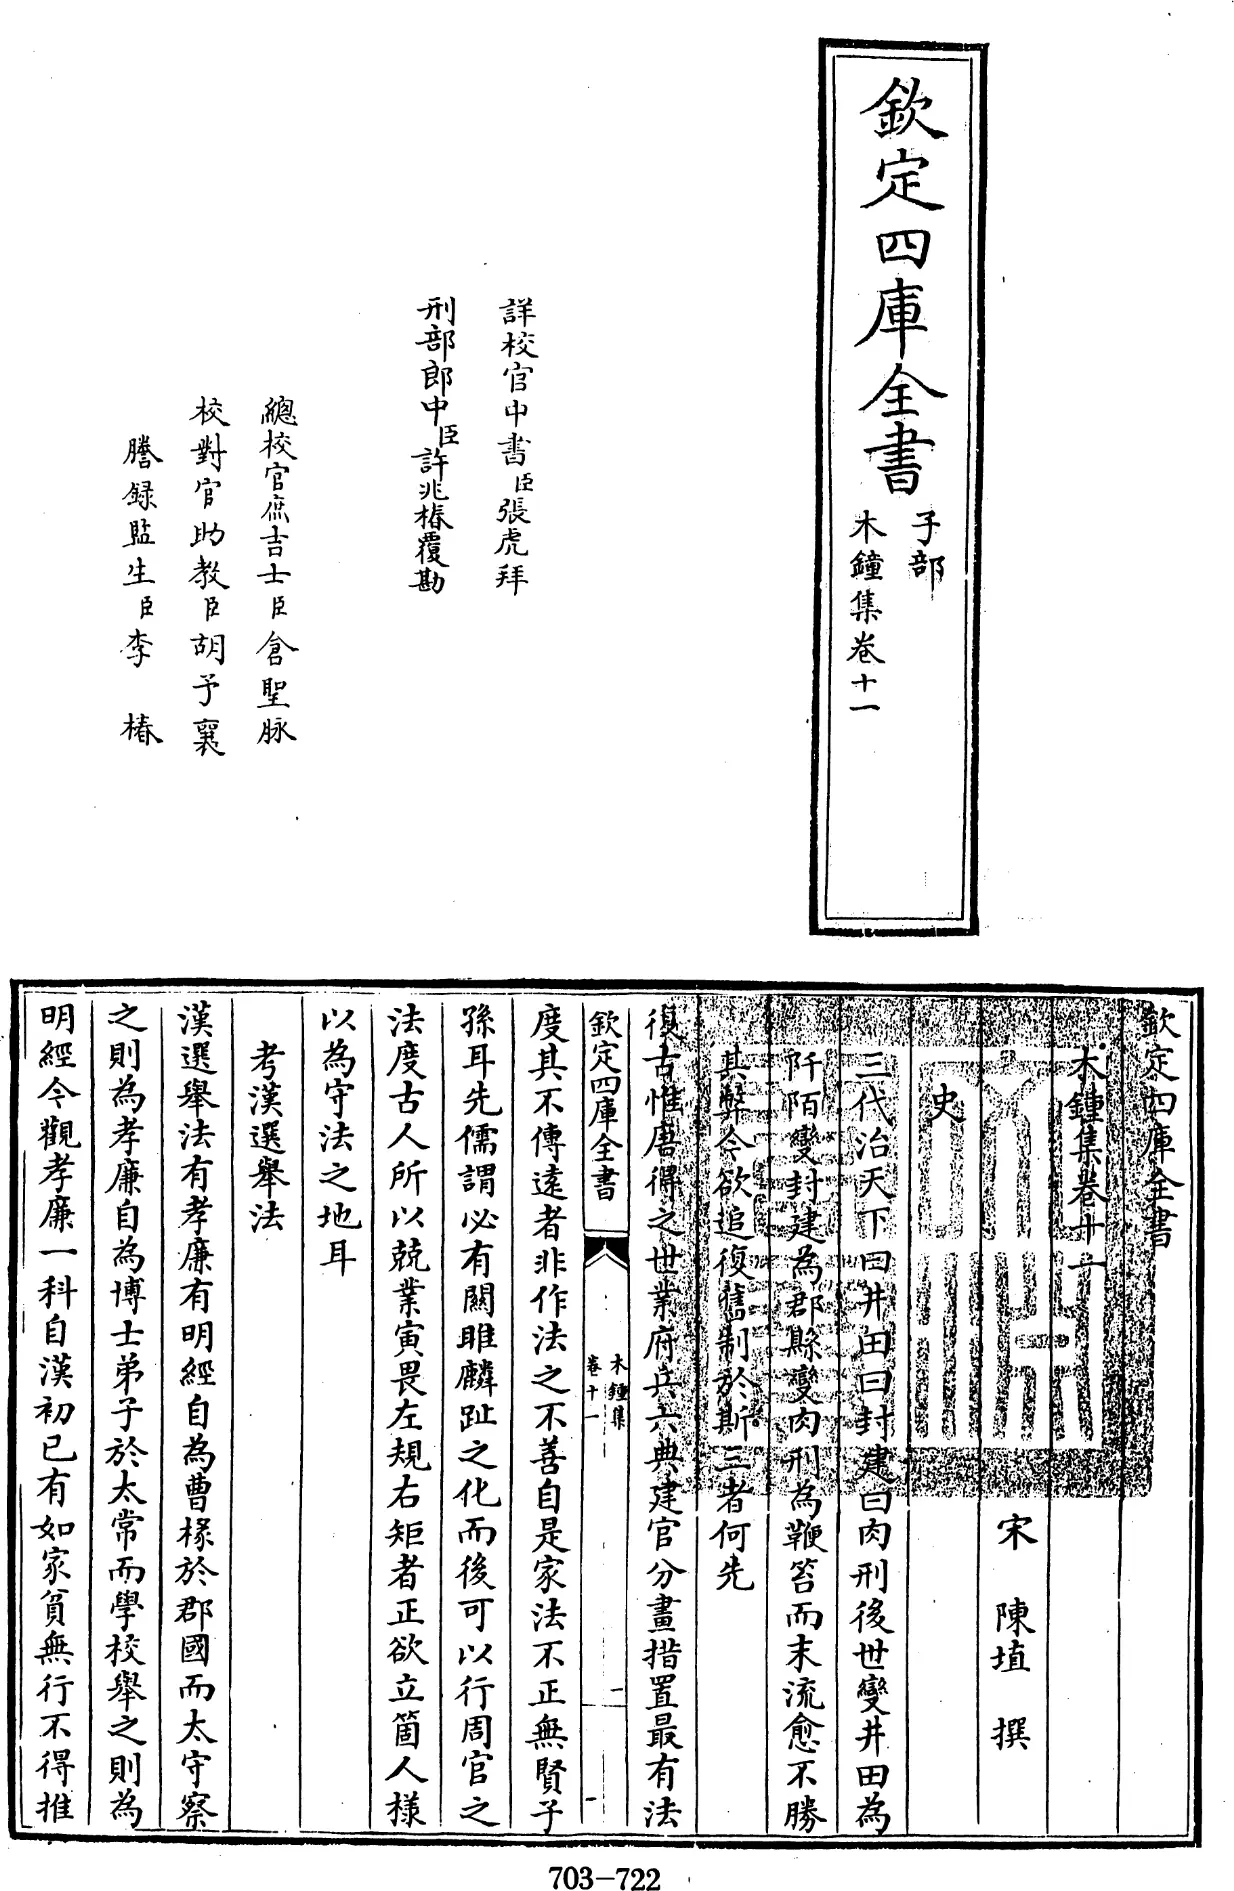 欽定四庫全書
子部
木鐘集卷十一
詳校官中書臣張虎拜
刑部郎中臣許兆椿覆勘
總校官庶吉士臣倉聖脉
校對官助教臣胡予襄
謄録監生臣李椿
欽定四庫全書
木鍾集卷十一
宋 陳埴 撰
史
三代治天下曰井田曰封建曰肉刑後世變井田為
阡陌變封建為郡縣變肉刑為鞭笞而末流愈不勝
其弊今欲追復舊制於斯三者何先
復古惟唐得之世業府兵六典建官分畫措置最有法
欽定四庫全書
木鍾集
卷十一
一
度其不傳逺者非作法之不善自是家法不正無賢子
孫耳先儒謂必有關雎麟趾之化而後可以行周官之
法度古人所以兢業寅畏左規右矩者正欲立箇人様
以為守法之地耳
考漢選舉法
漢選舉法有孝廉有明經自為曹掾於郡國而太守察
之則為孝廉自為博士弟子於太常而學校舉之則為
明經今觀孝廉一科自漢初已有如家貧無行不得推
703-722